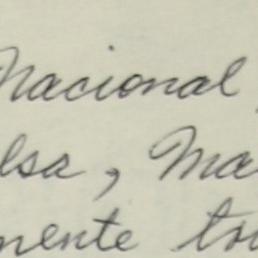 Nacional
lsa, Ma
mente to